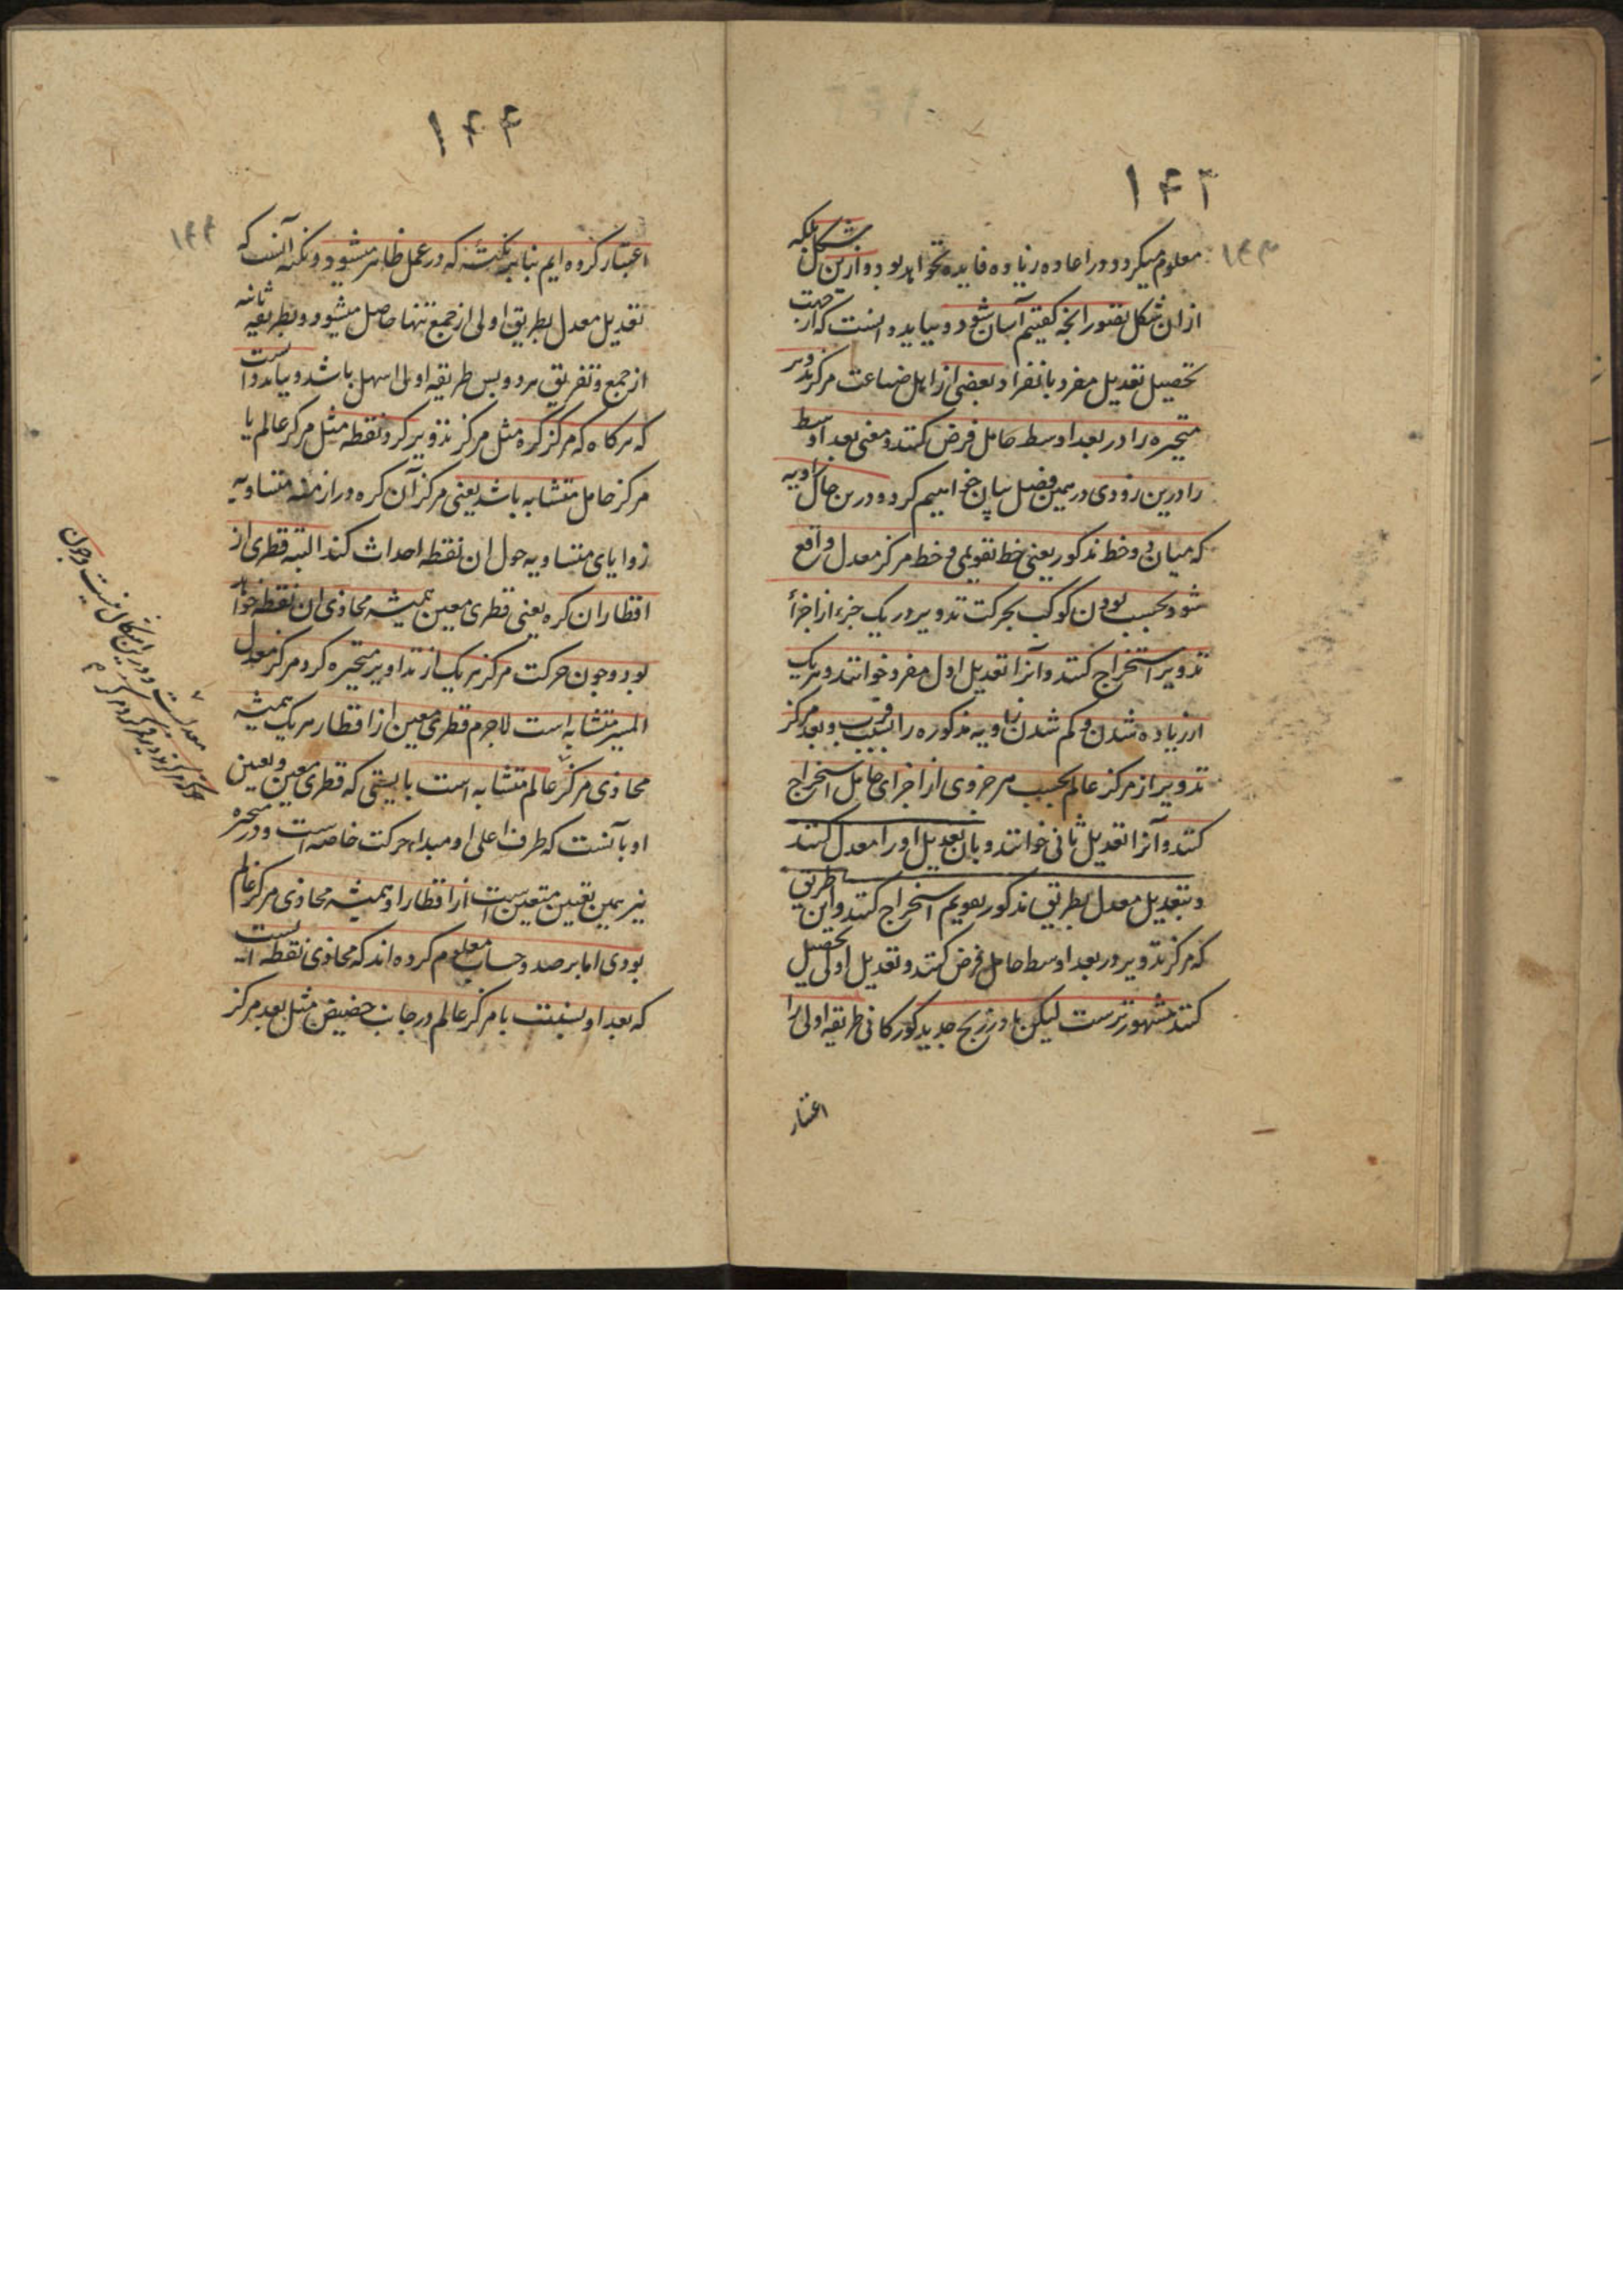 ۱۴۳
۱۴۳
معلوم میکردد و در اعاده زیاده فایده نخواهد بود و ازین شکل بلکه
ازان شکل تصور انچه کفتیم آسان شود و بباید دانست که از جهت
تحصیل تعدیل مفرد بانفراد بعضی از اهل صناعت مرکز تدویر
متحیره را در بعد اوسط حامل فرض کنند و معنی بعد اوسط
را درین زودی در همین فصل بیان خواهیم کرد و درین حال زاویه
که میان دو خط مذکور یعنی خط تقویمی و خط مرکز معدل واقع
شود بحسب بودن کوکب بحرکت تدویر در یک جزء از اجزأ
تدویر استخراج کنند و آنرا تعدیل اول مفرد خوانند و هریک
از زیاده شدن و کم شدن زاویه مذکوره را بسبب قرب و بعد مرکز
تدویر از مرکز عالم بحسب هر جزوی از اجزای حامل استخراج
کنند و آنرا تعدیل ثانی خوانند و بان تعدیل اورا معدل کنند
و بتعدیل معدل بطریق مذکور تقویم استخراج کنند و این طریق
که مرکز تدویر در بعد اوسط حامل فرض کنند و تعدیل اول تحصیل
کنند مشهورترست لیکن ما در زیج جدید کورکانی طریقه اولی را
اعتبار
۱۴۴
۱۴۴
اعتبار کرده ایم بنابر نکته که در عمل ظاهر میشود و نکته آنست که
تعدیل معدل بطریق اولی از جمع تنها حاصل میشود و بطریقه ثانیه
از جمع و تفریق هر دو پس طریقه اولی اسهل باشد و بباید دانست
که هرکاه که مرکز کره مثل مرکز تدویر کرد نقطه مثل مرکز عالم یا
مرکز حامل متشابه باشد یعنی مرکز آن کره در ازمنه متساویه
زوایای متساویه حول ان نقطه احداث کند البته قطری از
اقطار ان کره یعنی قطری معین همیشه محاذی ان نقطه خواهد
بود و چون حرکت مرکز هریک از تداویر متحیره کرد مرکز معدل
المسیر متشابه است لاجرم قطری معین از اقطار هریک همیشه
محاذی مرکز عالم متشابه است بایستی که قطری معین و تعین
او بآنست که طرف اعلی او مبداء حرکت خاصه است و در متحیره
نیز بهمین تعین متعین است از اقطار او همیشه محاذی مرکز عالم
بودی اما برصد و حساب معلوم کرده اند که محاذی نقطه ایست
که بعد او بنسبت با مرکز عالم در جانب حضیض مثل بعد مرکز